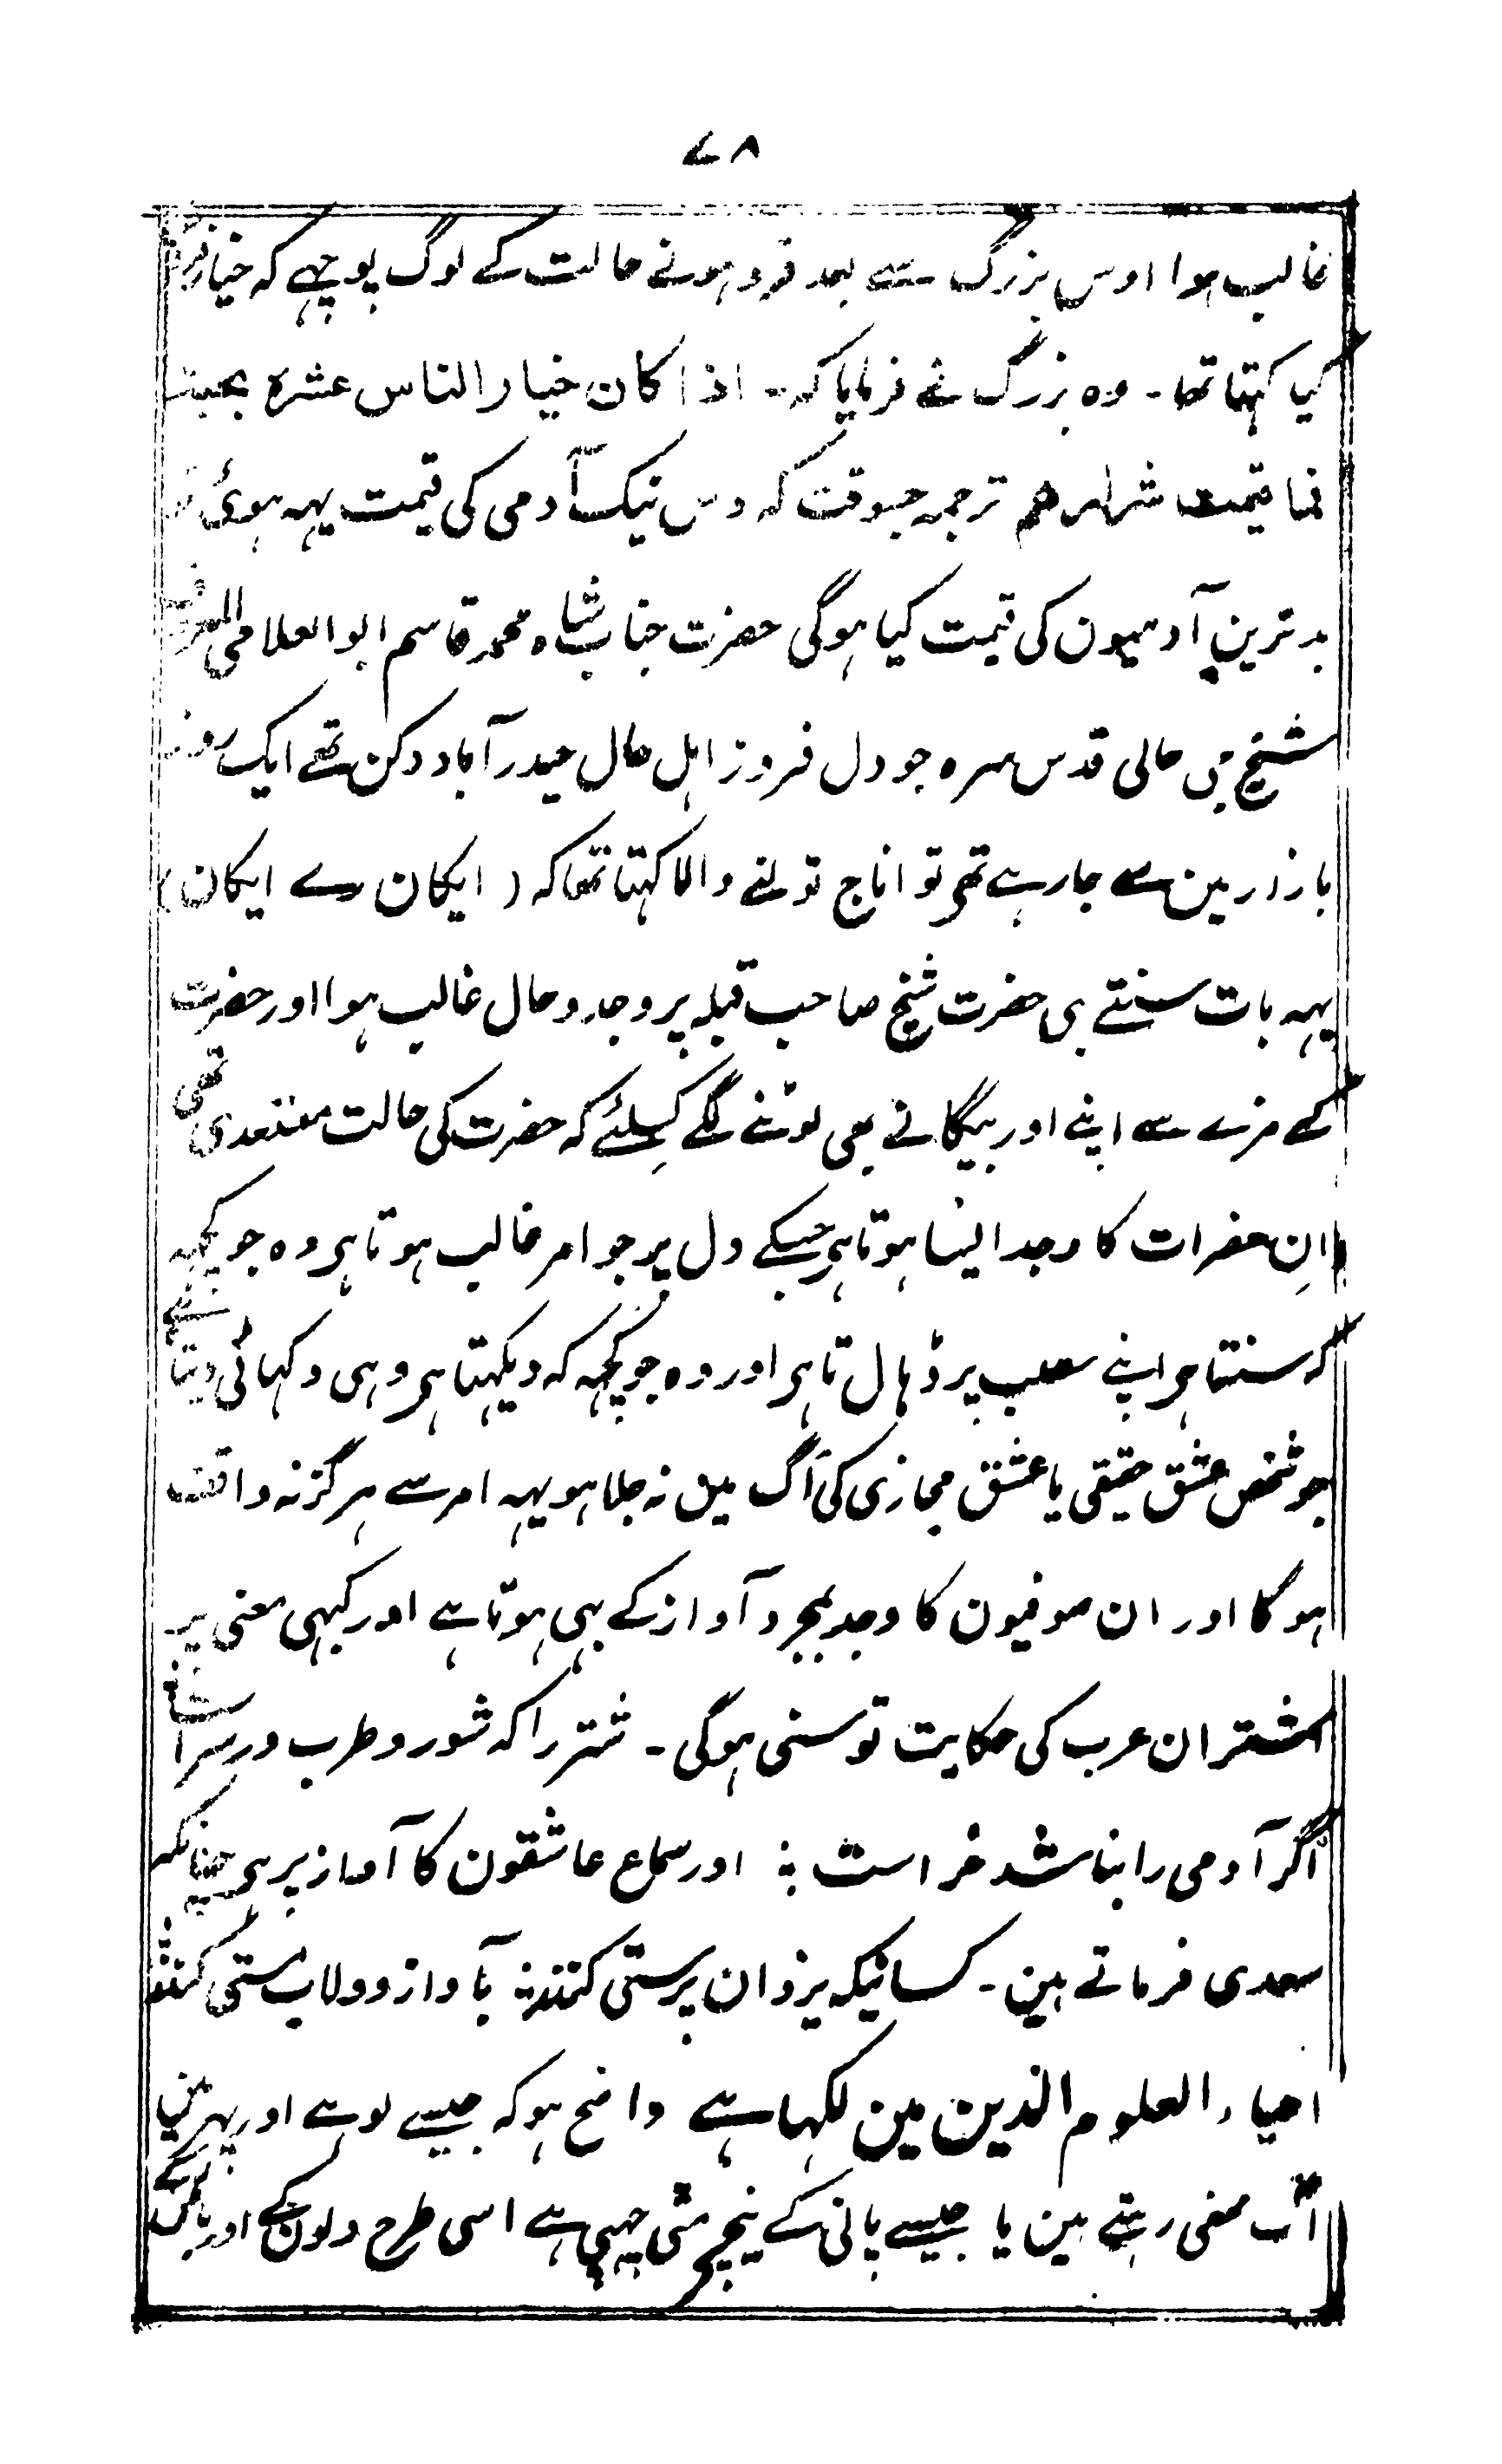 ۷۸
غالب ہوا اوس بزرگ سے بعد فرو ہونے حالت کے لوگ پوچہے کہ خیار
کیا کہتا تھا۔ وہ بزرگ نے فرمایا کہ۔ اذا کان خیار الناس عشرۃ بحبۃ
فما قیمت شرارھم ترجمہ جسوقت کہ دس نیک آدمی کی قیمت یہہ ہوئی
بدترین آدمیون کی قیمت کیا ہوگی حضرت جناب شاہ محمد قاسم ابوالعلامی المعروف
شیخ جی حالی قدس سرہ جو دل فروز اہل حال حیدرآباد دکن تھے ایک روز
بازار مین سے جا رہے تھے تو اناج تولنے والا کہتا تھا کہ (ایکان رے ایکان)
یہہ بات سنتے ہی حضرت شیخ صاحب قبلہ پر وجد و حال غالب ہوا اور حضرت
کے مزے سے اپنے اور بیگانے بھی لوٹنے لگے کسلئے کہ حضرت کی حالت متعدی تھی
اِن حضرات کا وجد ایسا ہوتا ہے جسکے دل پر جو امر غالب ہوتا ہے وہ جو کچہہ
کہ سنتا ہے اپنے مطلب پر ڈہال تا ہے اور وہ جو کچہہ کہ دیکہتا ہے وہی دکہائی دیتا ہے
جو شخص عشق حقیقی یا عشق مجازی کی آگ میں نہ جلا ہو یہہ امر سے ہرگز نہ واقف
ہوگا اور ان صوفیون کا وجد بمجرد آواز کے بہی ہوتا ہے اور کبہی معنی پر
اشتران عرب کی حکایت تو سنی ہوگی۔ شتر را کہ شور و طرب در سر است
اگر آدمی را نباشد خر است ؛ اور سماع عاشقون کا آواز پر ہے چنانکہ
سعدی فرماتے ہین۔ کسانیکہ یزدان پرستی کنند ؛ بآواز دولاب مستی کنند
احیاء العلوم الدین مین لکہا ہے واضح ہو کہ جیسے لوہے اور پتہر مین
آگ مخفی رہتے ہین یا جیسے پانی کے نیچے مٹی چہپی ہے اسی طرح دلون کے اور باطن کے